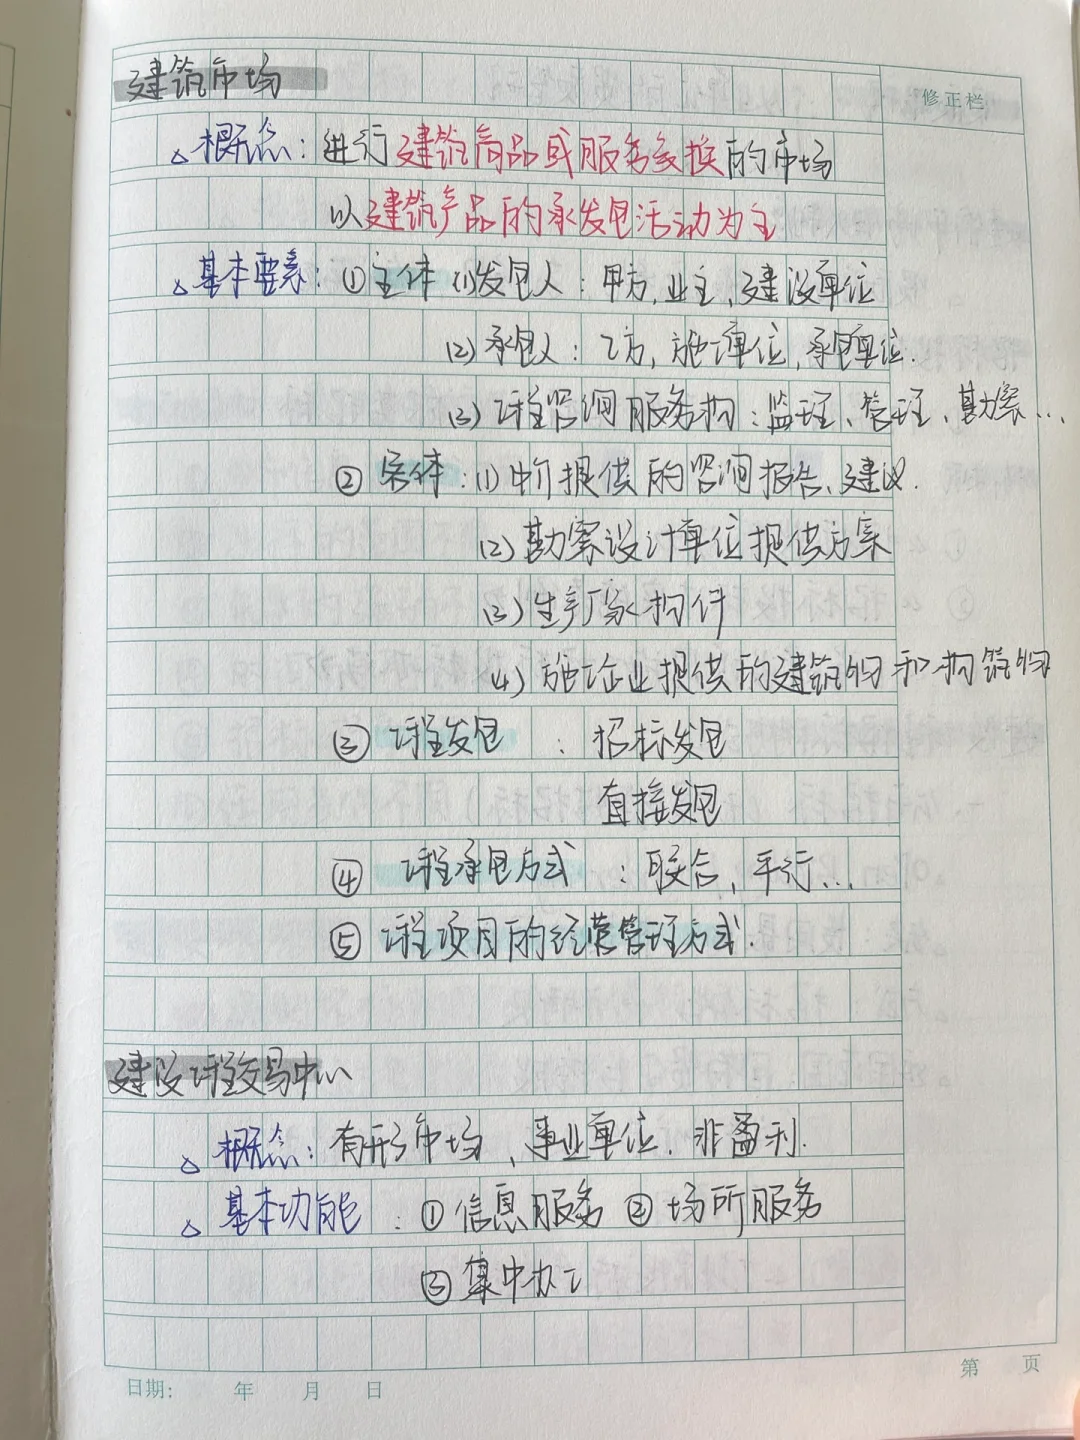 建筑市场
修正栏
△概念：进行建筑商品或服务交换的市场
以建筑产品的承发包活动为主
△基本要素：①主体 (1)发包人：甲方、业主、建设单位
(2)承包人：乙方、施工单位、承包单位.
(3)工程咨询服务机构：监理、管理、勘察...
②客体：(1)中介提供的咨询报告、建议.
(2)勘察设计单位提供方案
(3)生产厂家构件
(4)施工企业提供的建筑物和构筑物
③工程发包：招标发包
直接发包
④工程承包方式：联合、平行...
⑤工程项目的经营管理方式.
建设工程交易中心
△概念：有形市场、事业单位、非盈利.
△基本功能：①信息服务 ②场所服务
③集中办公
第 页
日期： 年 月 日